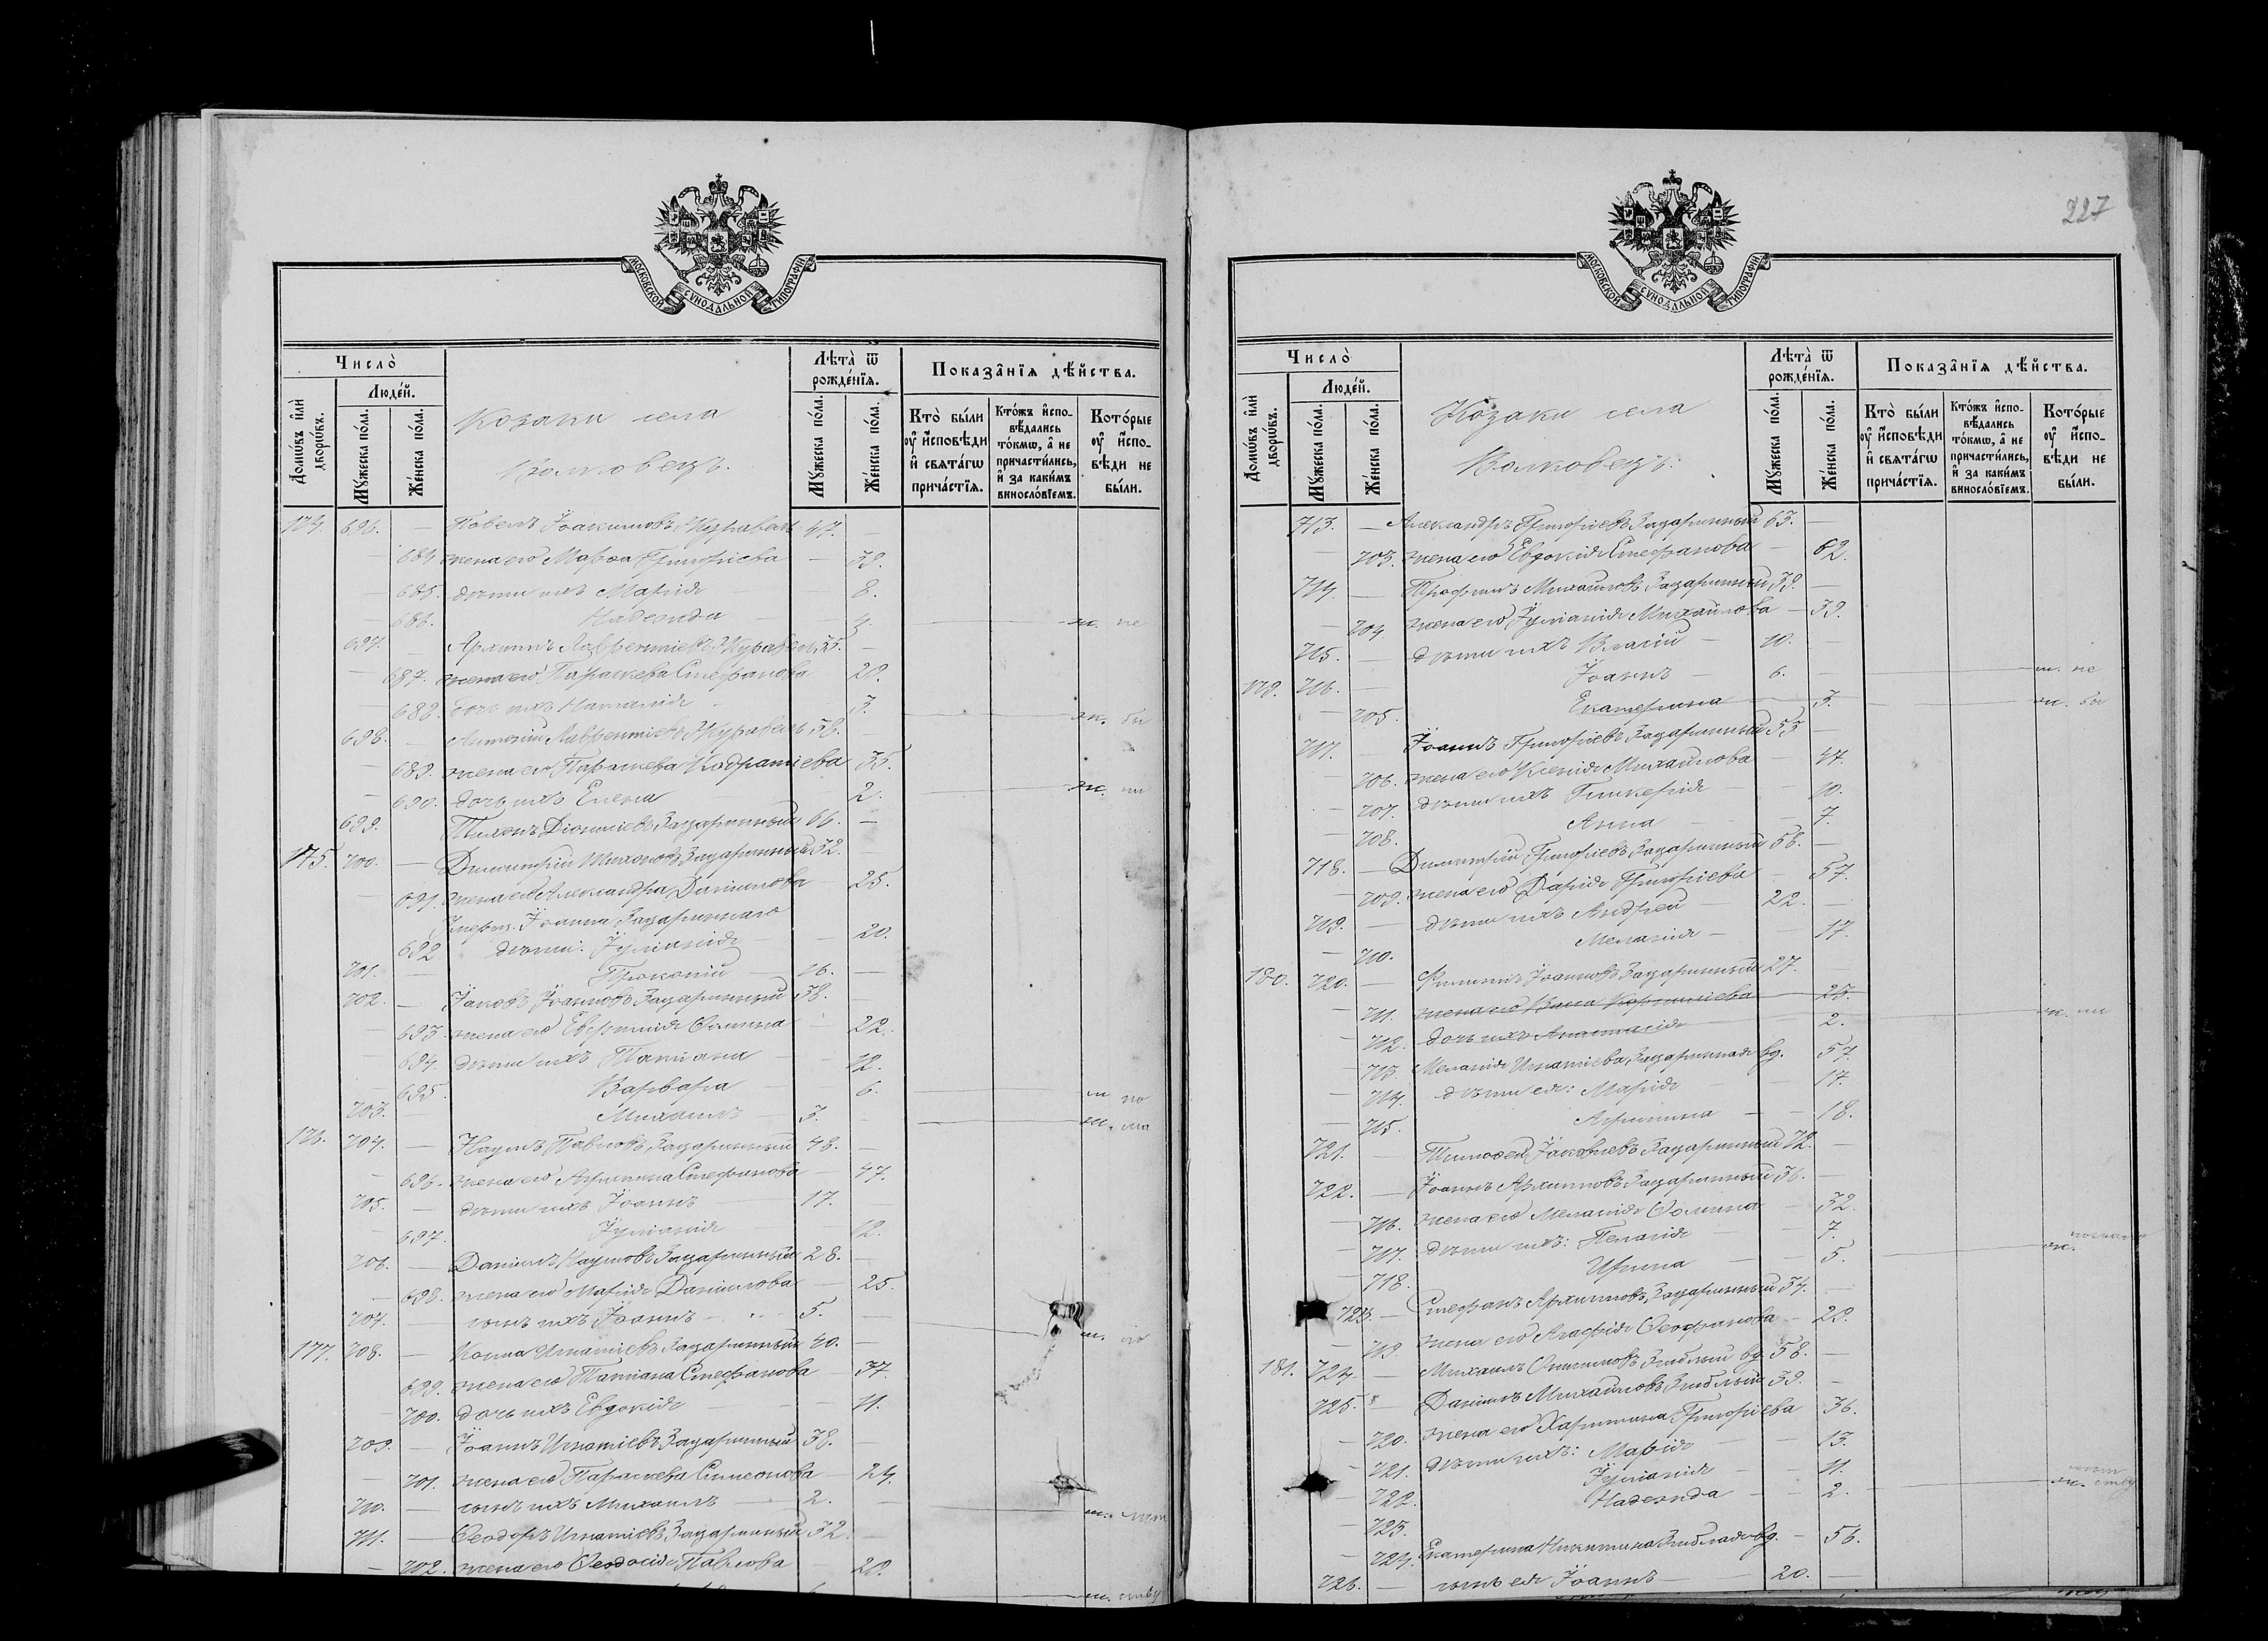 МОСКОВСКОЙ СУНОДАЛЬНОЙ ТИПОГРАФІИ
Число̀
Люде́й.
Домѡ́въ и҆лѝ дворѡ́въ.
Мꙋ́жеска по́ла.
Же́нска по́ла.
Козаки села
Волковецъ.
Лѣта̀ ѿ рожде́нїѧ.
Мꙋ́жеска по́ла.
Же́нска по́ла.
Показа̑нїѧ дѣ́йства.
Кто̀ бы́ли ᲂу҆ и҆сповѣ́ди и҆ свѧта́гѡ прича́стїѧ.
Кто́жъ и҆спо-вѣ́дались то́кмѡ, а҆ не причасти́лись, и҆ за каки́мъ винослѡ́вїемъ.
Кото́рые ᲂу҆ и҆спо-вѣ́ди не бы́ли.
174. 696. — Павелъ Іоакимовъ Журавель 47. —
— 684. жена его Марѳа Григоріева — 39.
— 685. дѣти ихъ Марія — 8.
— 686. Надежда — 4. м. не
697. — Архипъ Лаврентіевъ Журавель 35. —
— 687. жена его Параскева Стефанова 29.
— 688. дочь ихъ Наталія — 3. м. бы
698. — Антоній Лаврентіевъ Журавель 38. —
— 689. жена его Параскева Кодратіева 35.
— 690. дочь ихъ Елена 2. м. ли
699. Тихонъ Діонисіевъ Задорожный 66. —
175. 700. — Димитрій Тихоновъ Задорожный 32. —
— 691. жена его Александра Даніилова — 25.
Умерш. Іоанна Задорожнаго
692. дѣти: Іуліанія — 20.
701. — Прокопій — 16. —
702. — Іаковъ Іоанновъ Задорожный 38. —
— 693. жена его Евфимія Ѳомина 22.
— 694. дѣти ихъ Татіана — 12.
— 695. Варвара — 6. м по
703. — Михаилъ — 3. — м. ма
176. 704. — Наумъ Павловъ Задорожный 48. —
— 696. жена его Агрипина Стефанова — 47.
705. — дѣти ихъ Іоаннъ 17. —
— 697. Іуліанія 12.
706. — Даніилъ Наумовъ Задорожный 28. —
— 698. жена его Марія Даніилова — 25.
707. — сынъ ихъ Іоаннъ — 5. — м.
177. 708. — Косма Игнатіевъ Задорожный 40. —
699. жена его Татіана Стефанова — 37.
— 700. дочь ихъ Евдокія — 11.
709. — Іоаннъ Игнатіевъ Задорожный 38. —
— 701. жена его Параскева Симеонова — 24.
710. — сынъ ихъ Михаилъ 2. — м.
711. — Ѳеодоръ Игнатіевъ Задорожный 32. —
— 702. жена его Ѳеодосія Павлова 20.
м. ству
227
МОСКОВСКОЙ СУНОДАЛЬНОЙ ТИПОГРАФІИ
Число̀
Люде́й.
Домѡ́въ и҆лѝ дворѡ́въ.
Мꙋ́жеска по́ла.
Же́нска по́ла.
Козаки села
Волковецъ.
Лѣта̀ ѿ рожде́нїѧ.
Мꙋ́жеска по́ла.
Же́нска по́ла.
Показа̑нїѧ дѣ́йства.
Кто̀ бы́ли ᲂу҆ и҆сповѣ́ди и҆ свѧта́гѡ прича́стїѧ.
Кто́жъ и҆спо-вѣ́дались то́кмѡ, а҆ не причасти́лись, и҆ за каки́мъ винослѡ́вїемъ.
Кото́рые ᲂу҆ и҆спо-вѣ́ди не бы́ли.
713. — Александръ Григоріевъ Задорожный 63. —
— 703. жена его Евдокія Стефанова — 62.
714. — Трофимъ Михаиловъ Задорожный 39. —
— 704. жена его Іуліанія Михайлова — 39.
715. — дѣти ихъ Власій — 10.
179. 716. — Іоаннъ — 6. — м. не
— 705. Екатерина 3. м. бы
717. — Іоаннъ Григоріевъ Задорожный 53 —
— 706. жена его Ксенія Михайлова 47.
— 707. дѣти ихъ Гликерія — 10.
— 708. Анна — 7.
718. — Димитрій Григоріевъ Задорожный 58. —
— 709. жена его Дарія Григоріева — 57.
719. — дѣти ихъ Андрей — 22. —
— 710. Меланія — 17.
180. 720. — Филиппъ Іоанновъ Задорожный 27. —
— 711. жена его Васса Корниліева 25.
— 712. дочь ихъ Анастасія 2. м. ли
— 713. Меланія Игнатіева Задорожная вд. 57.
— 714. дѣти ея: Марія — 17.
— 715. Агрипина — 18.
721. — Тимоѳей Іаковлевъ Задорожный 72. —
722. — Іоаннъ Архиповъ Задорожный 36. —
— 716. жена его Меланія Ѳомина — 32.
— 717. дѣти ихъ: Пелагія — 7.
— 718. Ирина — 5. м.
723. — Стефанъ Архиповъ Задорожный 34. —
— 719. жена его Агафія Ѳеофанова — 29.
181. 724. — Михаилъ Онисимовъ вд. 58. —
725. — Даніилъ Михайловъ 39. —
— 720. жена его Харитина Григоріева 36.
— 721. дѣти ихъ: Марія — 13.
— 722. Іуліанія — 11.
— 723. Надежда — 2. м. ству
— 724. Екатерина Никитина вд. — 56.
726. — сынъ ея Іоаннъ — 20. —